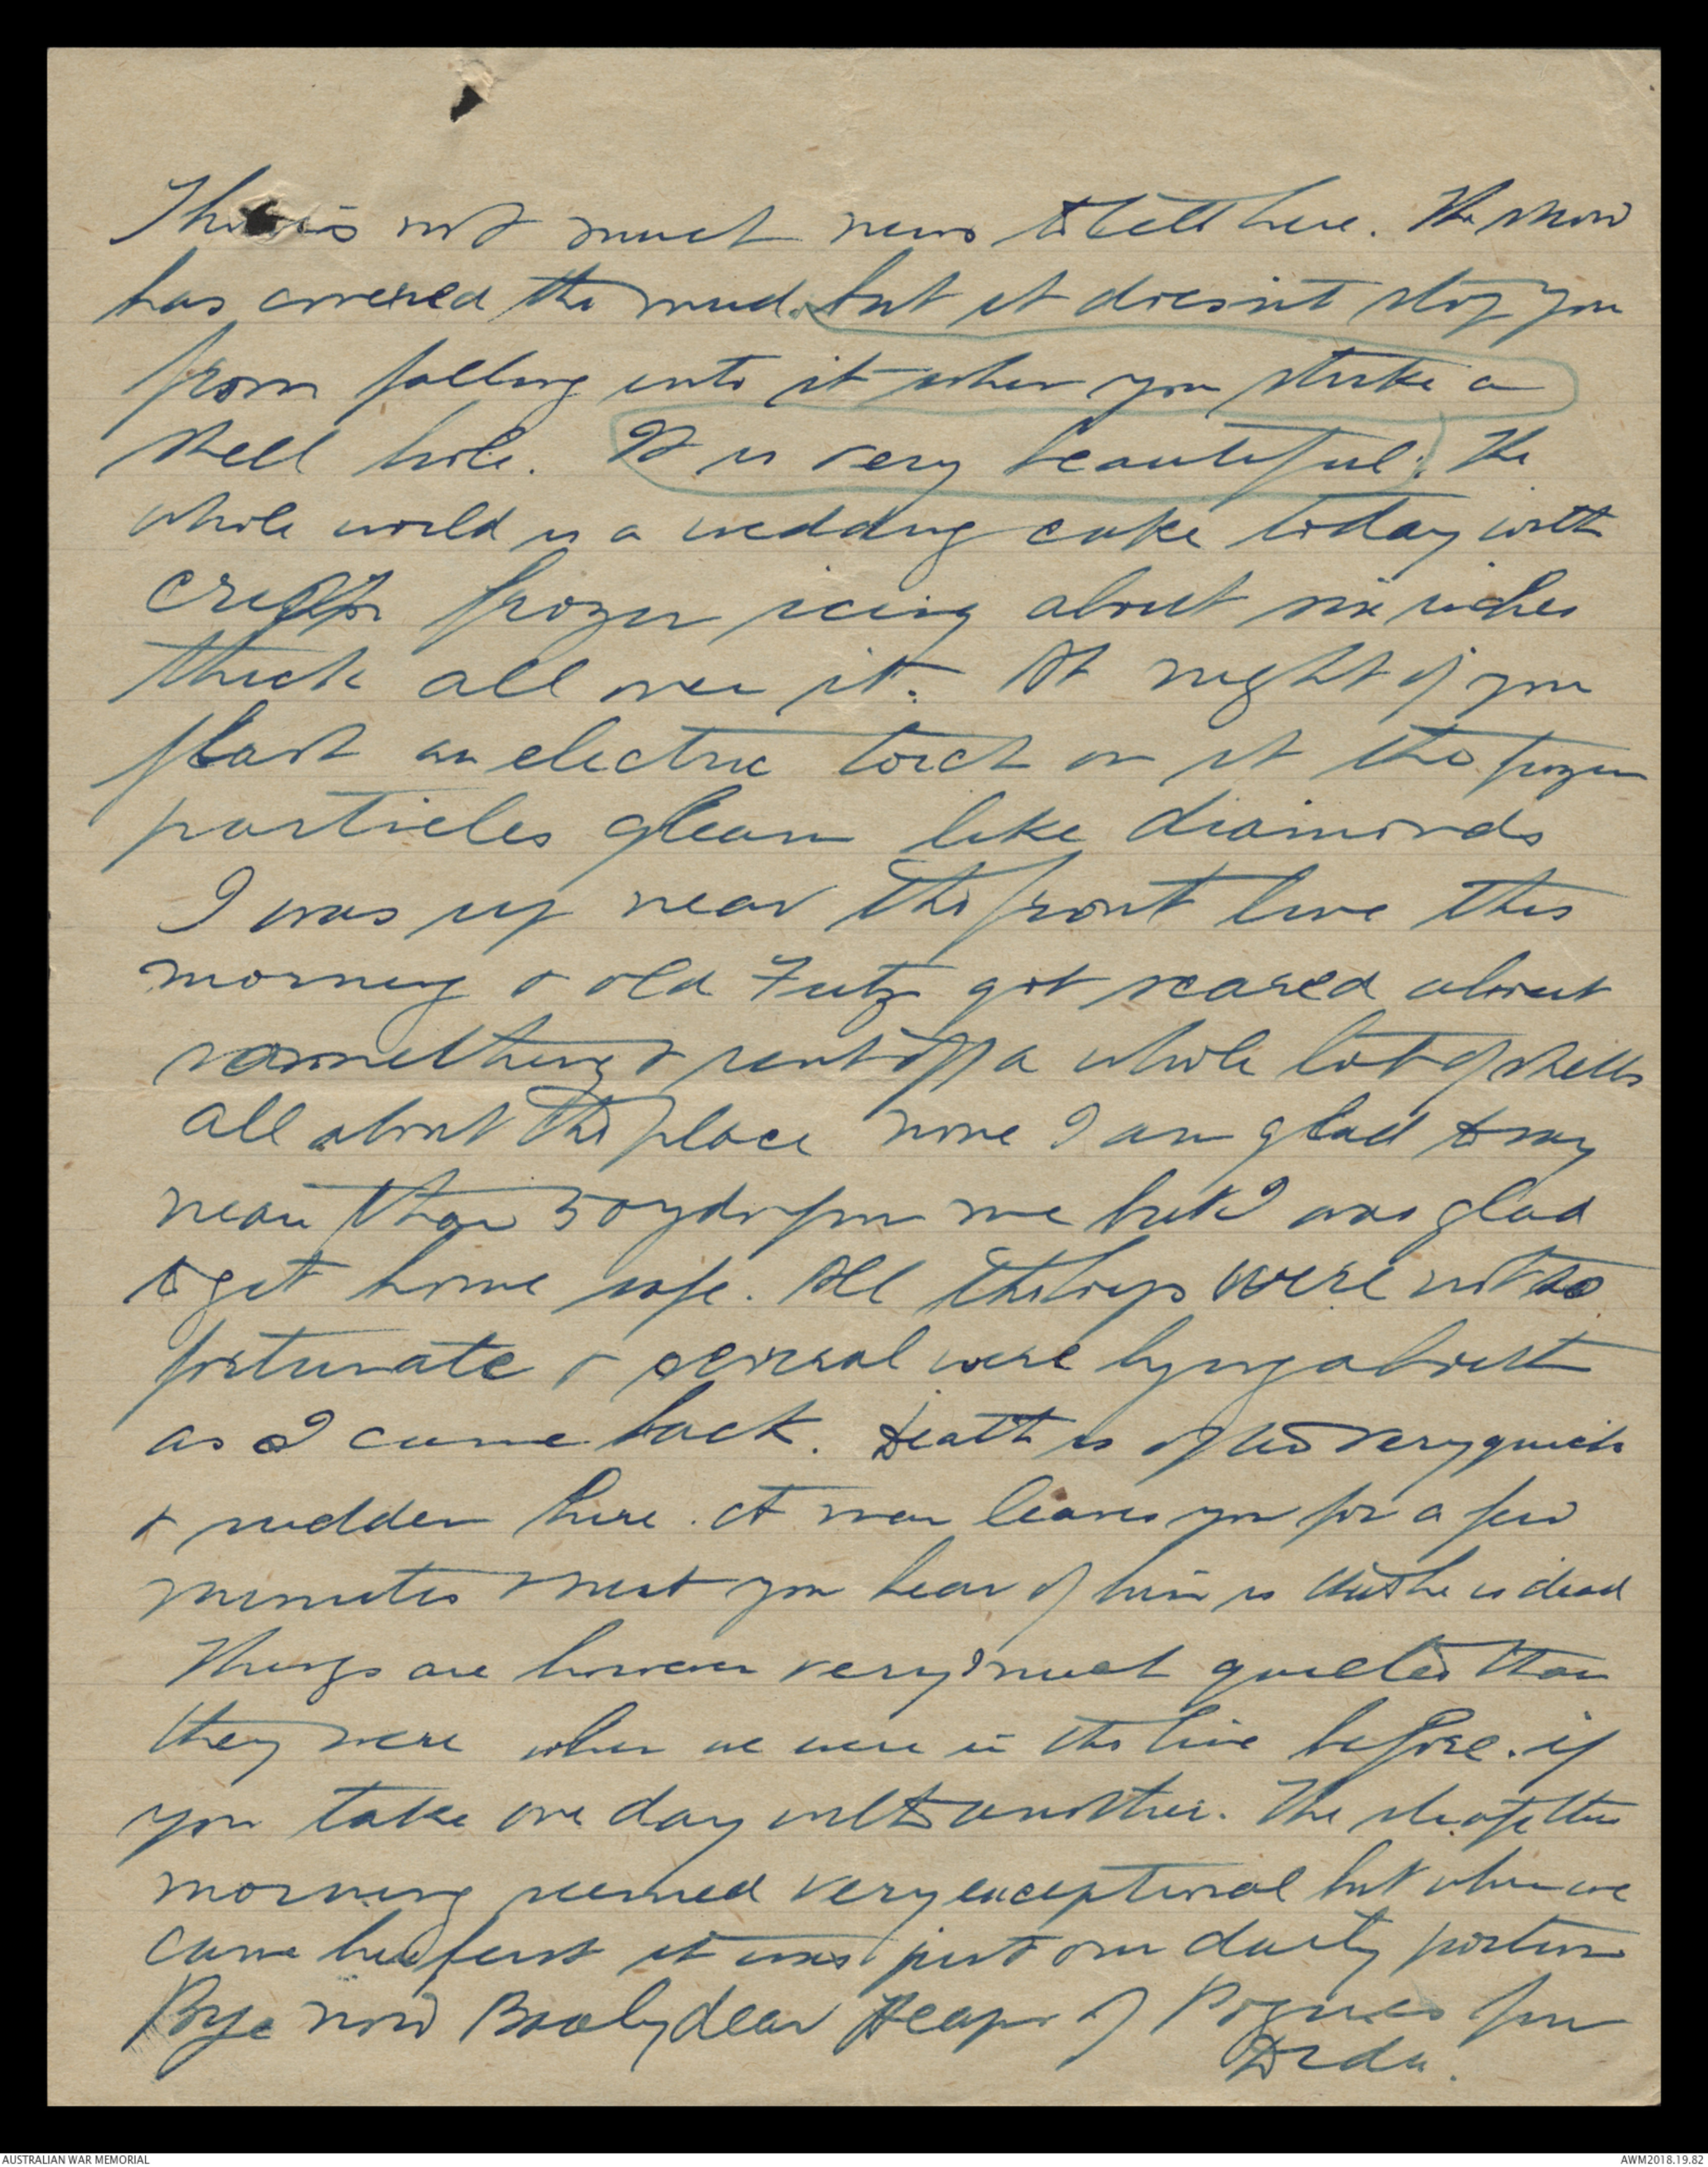 There is not much news to tell here. The snow
has covered the mud. but it doesn't stop you
from falling into it when you strike a
shell hole. It is very beautiful. The
whole world is a wedding cake today with
frozen icing about six inches
thick all over it. At night if you
flash an electric torch on it the frozen
particles gleam like diamonds
I was up near the front line this
morning & old Fritz got scared about
something & sent off a whole lot of shells
all about the place none I am glad to say
nearer than 50 yds from me but I was glad
to get home safe. All the boys were not so
fortunate & several were lying about
as I came back. Death is often very quick
& sudden here. A man leaves you for a few
minutes & next you hear of him is that he is dead
Things are however very much quieter than
they were when we were in the line before. if
you take one day with another. The strafe this
morning seemed very exceptional but when we
came here first it was just our daily portion
Bye now dear Heaps of from
Dida.
AUSTRALIAN WAR MEMORIAL
AWM2018.19.82